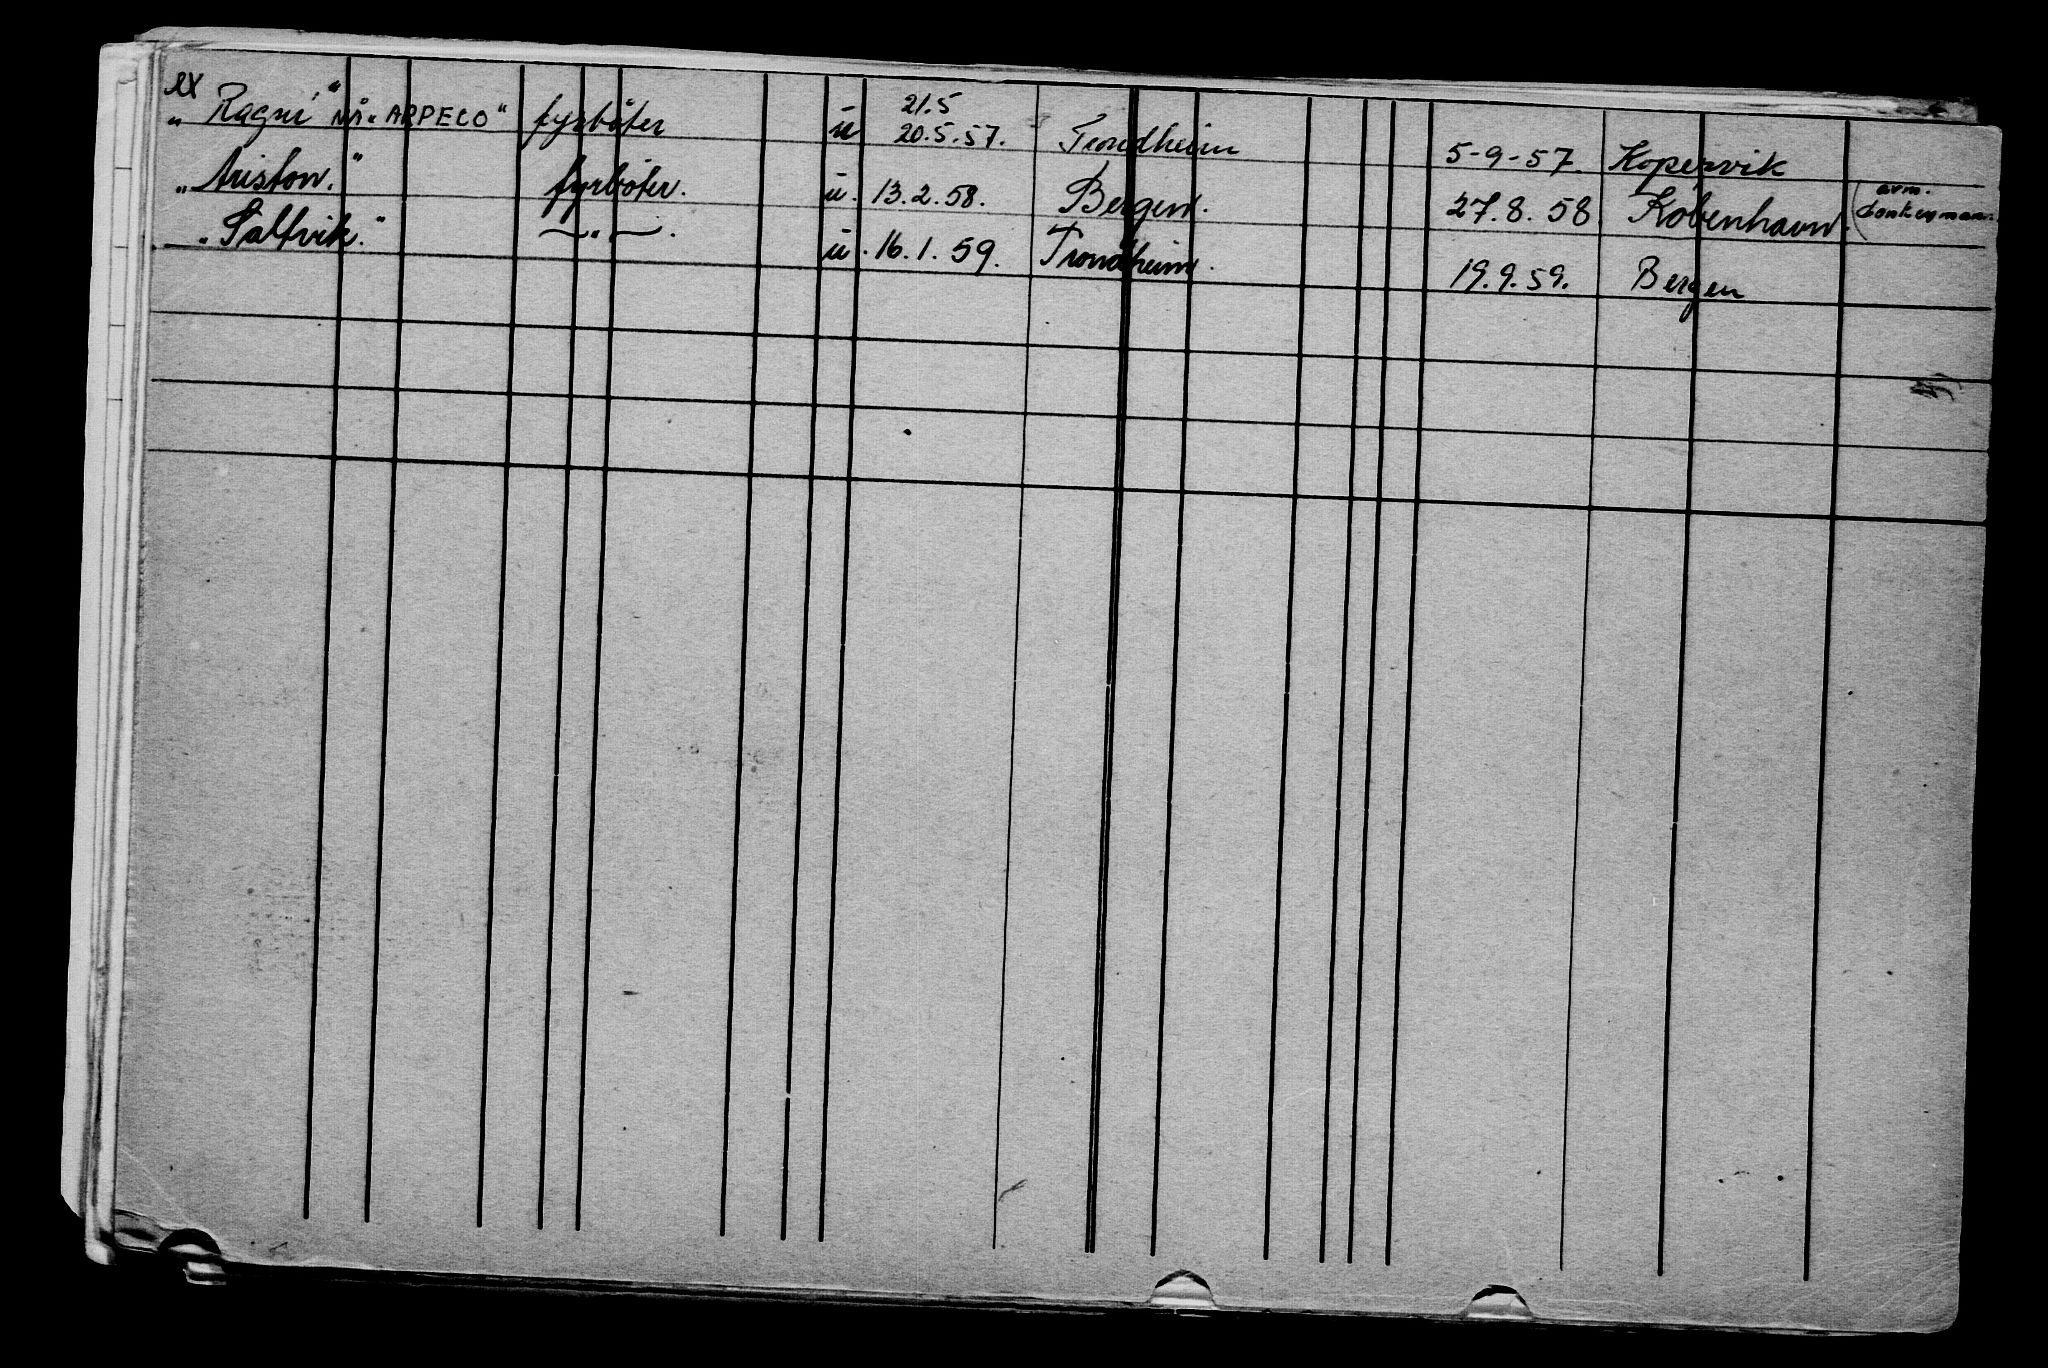 ex „Ragni" NÅ „ARPECO" fyrbøter u 21.5 20.5.57. Trondheim 5-9-57. Kopervik
„Ariston." fyrbøter. u. 13.2.58. Bergen. 27.8.58 København. (avm. donkeymann.
„Saltvik." —„—. u. 16.1.59. Trondheim. 19.9.59. Bergen